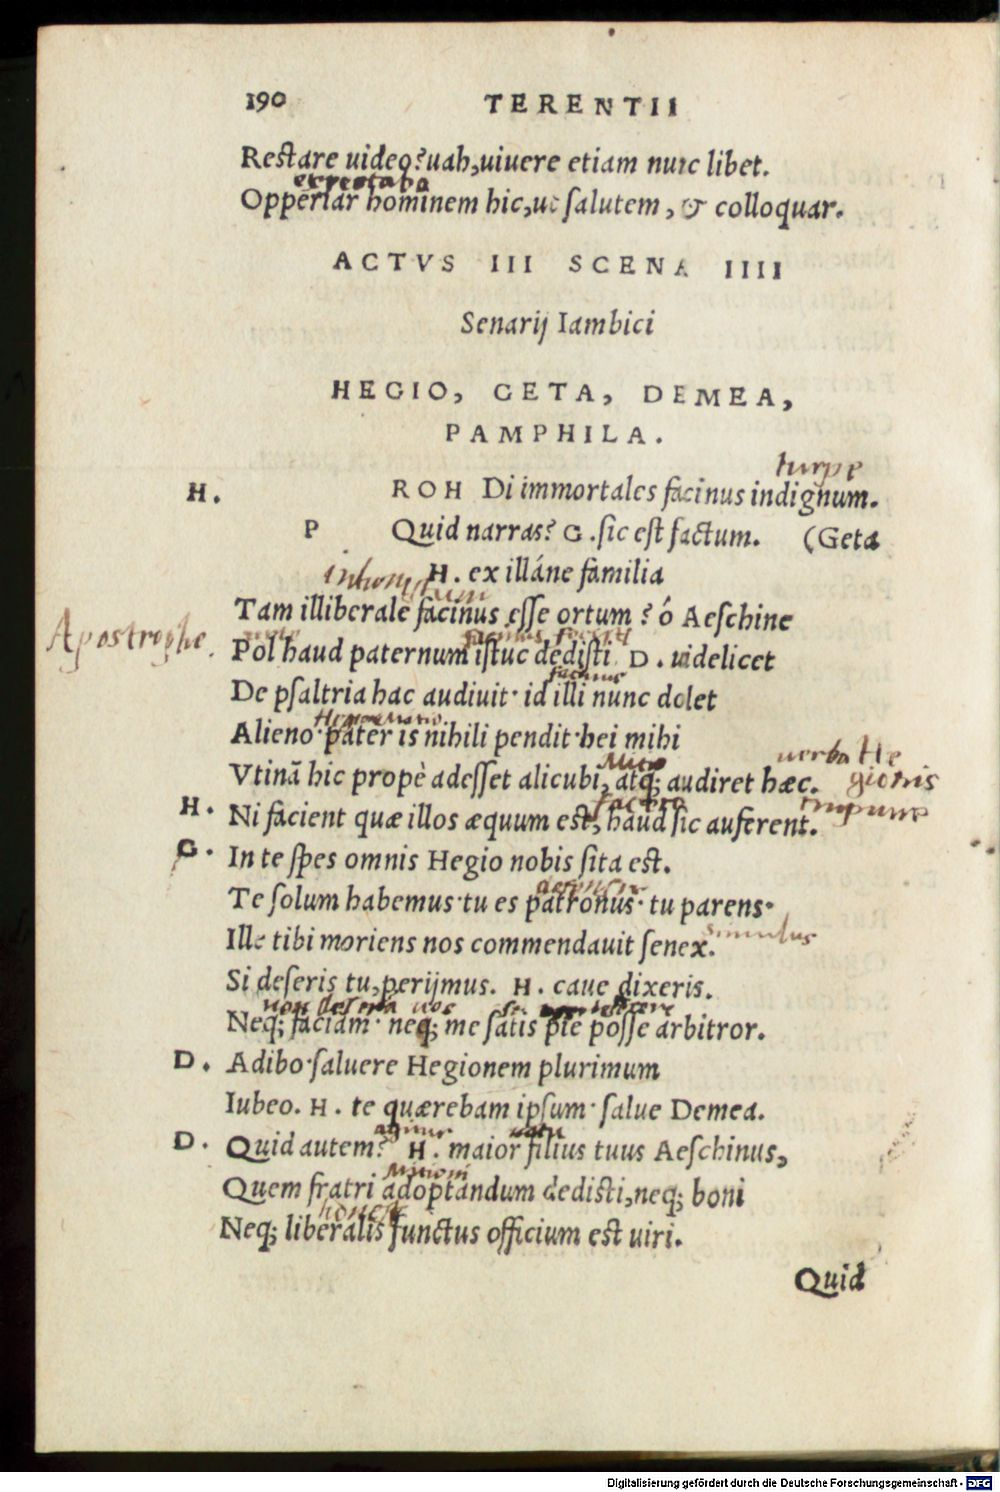 190 TERENTII
Restare uideo?uah,uiuere etiam nunc libet.
expectabo
Opperiar hominem hic,ut salutem, & colloquar.
ACTVS III SCENA IIII
Senarij Iambici
HEGIO, GETA, DEMEA,
PAMPHILA.
turpe
H. ROH Di immortales facinus indignum.
P Quid narras? G. sic est factum. (Geta
H. ex illáne familia
inhonestum
Tam illiberale facinus esse ortum? ó Aeschine
Apostrophe.
facinus fecisti
Pol haud paternum istuc dedisti D. uidelicet
facinus
De psaltria hac audiuit· id illi nunc dolet
Alieno·pater is nihili pendit·hei mihi
Micio uerba He
Vtinã hic propè adesset alicubi, atq; audiret hæc. gionis
impune
H. Ni facient quæ illos æquum est, haud sic auferent.
G. In te spes omnis Hegio nobis sita est.
Te solum habemus·tu es patronus· tu parens·
simulus
Ille tibi moriens nos commendauit senex.
Si deseris tu,perijmus. H. caue dixeris.
non deseram uos
Neq; faciam· neq; me satis pie posse arbitror.
D. Adibo·saluere Hegionem plurimum
Iubeo. H. te quærebam ipsum· salue Demea.
natu
D. Quid autem? H. maior filius tuus Aeschinus,
Micioni
Quem fratri adoptandum dedisti,neq; boni
Neq; liberalis functus officium est uiri.
Quid
Digitalisierung gefördert durch die Deutsche Forschungsgemeinschaft - DFG